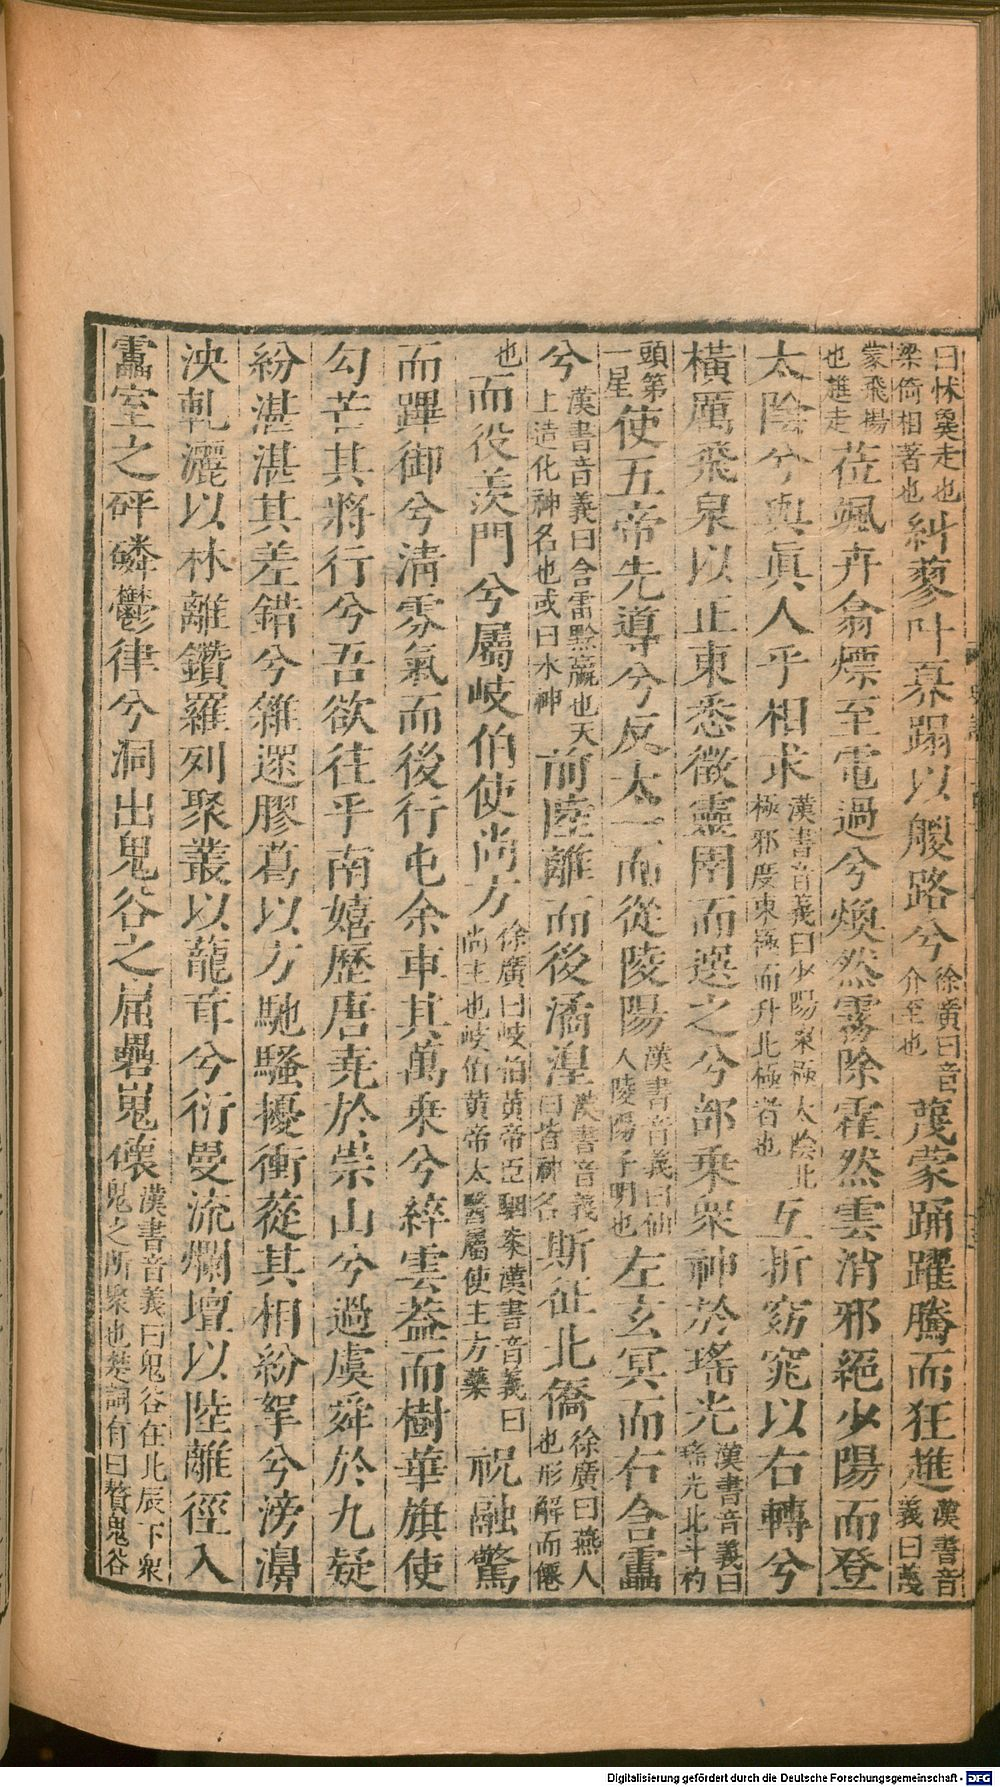 曰怵㚟走也梁倚相著也糾蓼叫奡蹋以艐路兮徐廣曰音介至也蔑蒙踊躍騰而狂進漢書音義曰蔑
蒙飛揚也趡走莅颯卉翕熛至電過兮煥然霧除霍然雲消邪絕少陽而登
太陰兮與眞人乎相求漢書音義曰少陽東極太陰北極邪度東極而升北極者也互折窈窕以右轉兮
橫厲飛泉以正東悉徵靈圉而選之兮部乗衆神於瑤光漢書音義曰瑤光北斗杓
頭第一星使五帝先導兮反太一而從陵陽漢書音義曰仙人陵陽子明也左玄冥而右含靁
兮漢書音義曰含雷黔嬴也天上造化神名也或曰水神前陸離而後潏湟漢書音義曰皆神名斯征北僑徐廣曰燕人也形解而僊
也而役羨門兮屬岐伯使尚方徐廣曰岐伯黄帝臣駰案漢書音義曰尚主也岐伯黄帝太醫屬使主方藥祝融驚
而蹕御兮淸雰氣而後行屯余車其萬乗兮綷雲葢而樹華旗使
勾芒其將行兮吾欲往乎南嬉歷唐堯於崇山兮過虞舜於九疑
紛湛湛其差錯兮雜遝膠葛以方馳騷擾衝蓯其相紛挐兮滂濞
泱軋灑以林離鑽羅列聚叢以蘢茸兮衍曼流爛壇以陸離徑入
靁室之砰磷鬱律兮洞出鬼谷之崫礨嵬㠢漢書音義曰鬼谷在北辰下衆鬼之所聚也楚詞有曰贅鬼谷
Digitalisierung gefördert durch die Deutsche Forschungsgemeinschaft - DFG